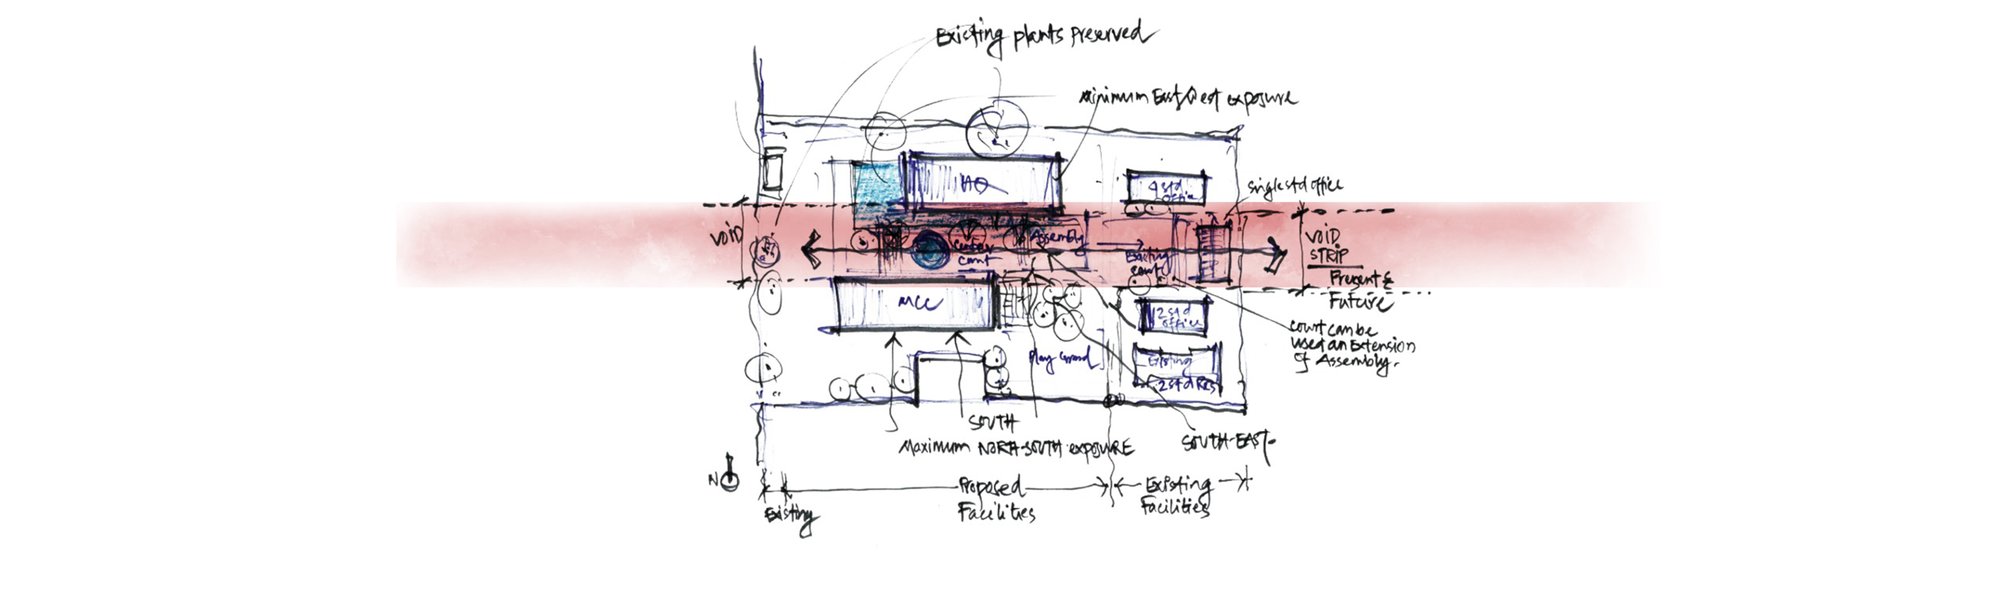 Existing plants Preserved
Minimum East West exposure
HQ
4 std
office
single std office
VOID
Center
court
Assembly
Existing
court
VOID
STRIP
Present &
Future
MCC
2 std
office
court can be
used an Extension
of Assembly.
Play Ground
Existing
2 std Res
SOUTH
Maximum NORTH-SOUTH exposure
SOUTH-EAST
N
Proposed
Facilities
Existing
Facilities
Existing